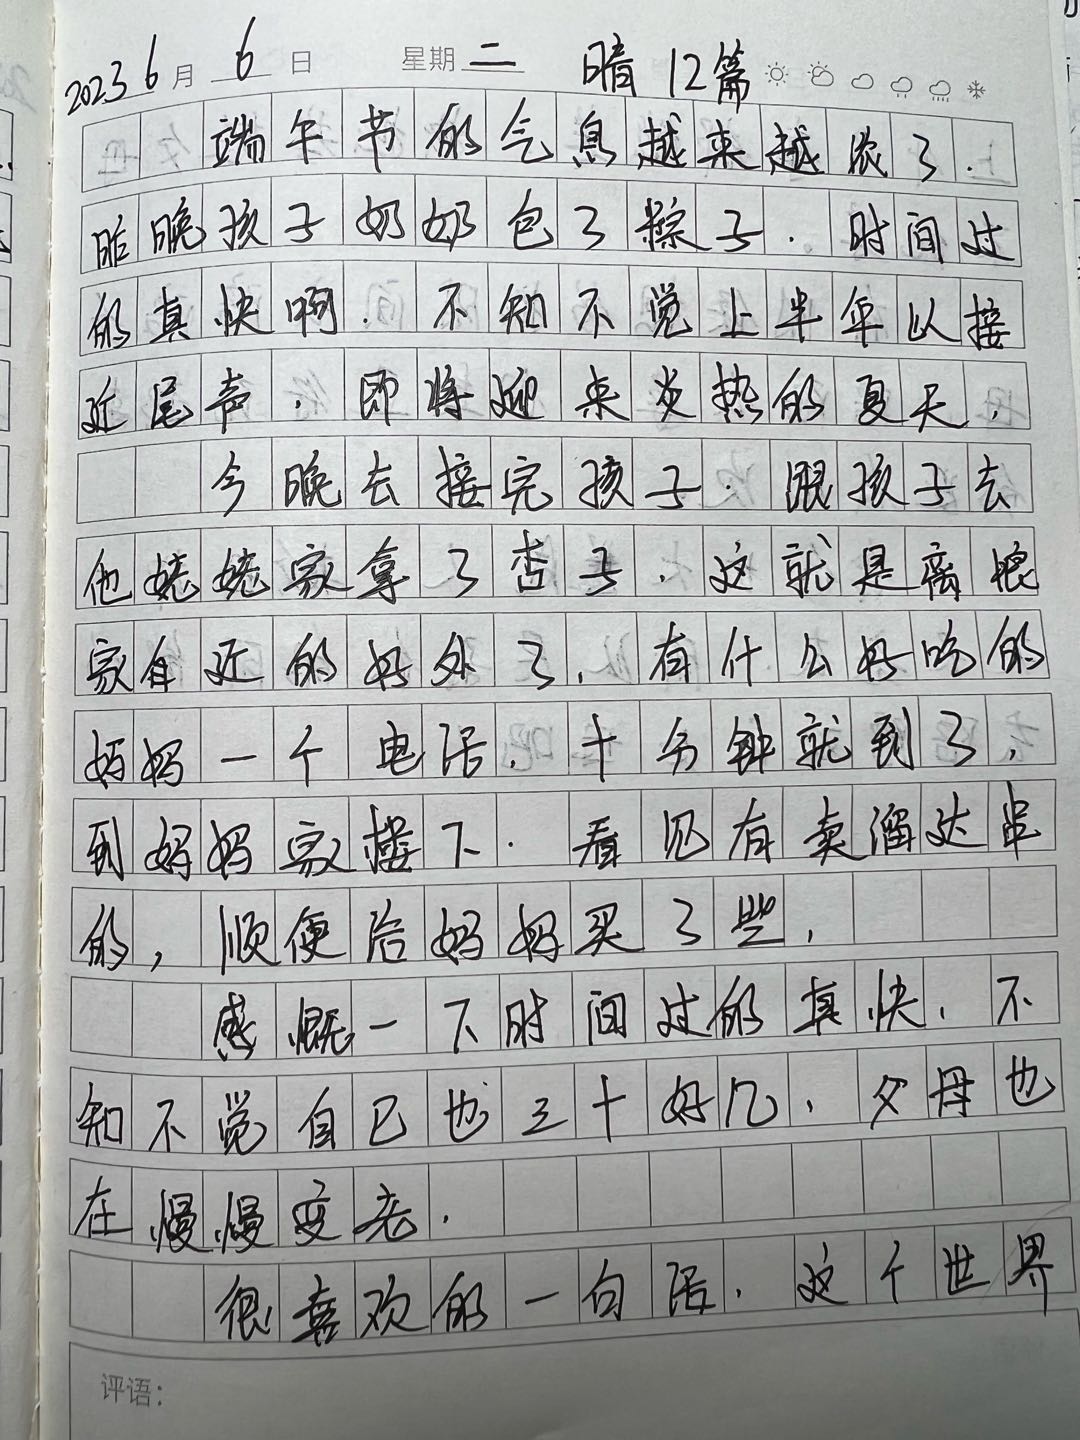 2023 6月 6 日 星期 二 晴 12篇
端午节的气息越来越浓了.
昨晚孩子奶奶包了粽子. 时间过
的真快啊. 不知不觉上半年以接
近尾声. 即将迎来炎热的夏天,
今晚去接完孩子. 跟孩子去
他姥姥家拿了杏子. 这就是离娘
家有近的好处了. 有什么好吃的
妈妈一个电话. 十分钟就到了,
到妈妈家楼下. 看见有卖溜达串
的, 顺便给妈妈买了些,
感慨一下时间过的真快. 不
知不觉自己也三十好几. 父母也
在慢慢变老.
很喜欢的一句话. 这个世界
评语: